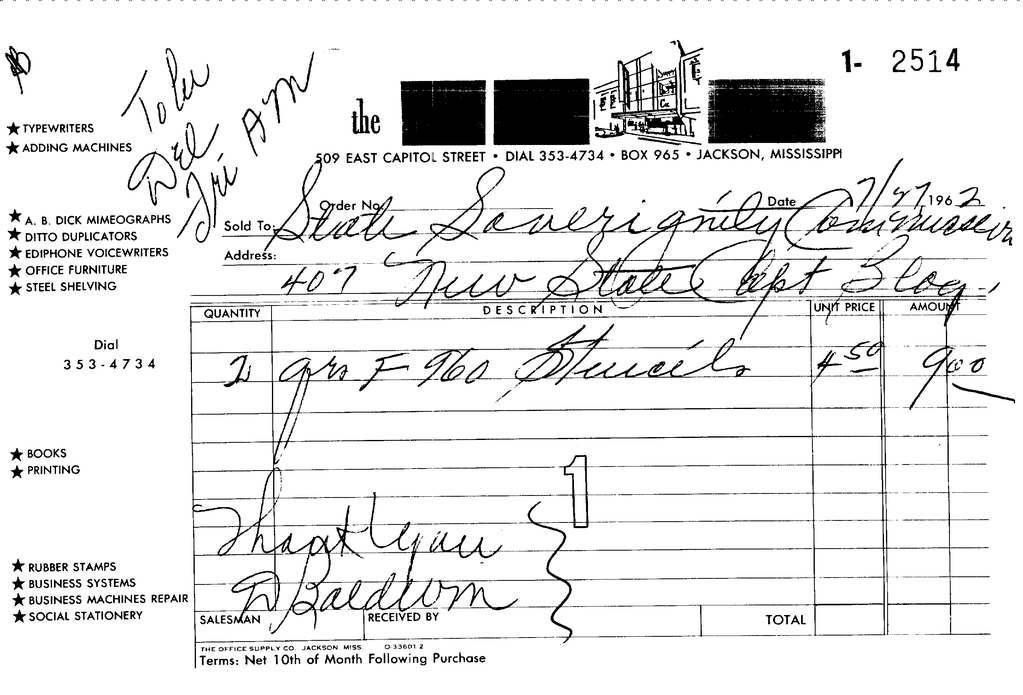 1- 2514
To Lee
Del
Fri AM
the
509 EAST CAPITOL STREET • DIAL 353-4734 • BOX 965 • JACKSON, MISSISSIPPI
★ TYPEWRITERS
★ ADDING MACHINES
★ A. B. DICK MIMEOGRAPHS
★ DITTO DUPLICATORS
★ EDIPHONE VOICEWRITERS
★ OFFICE FURNITURE
★ STEEL SHELVING
Dial
353-4734
★ BOOKS
★ PRINTING
★ RUBBER STAMPS
★ BUSINESS SYSTEMS
★ BUSINESS MACHINES REPAIR
★ SOCIAL STATIONERY
Order No. Date 7/27 1962
Sold To: State Soverignity Commission
Address: 407 New State Capt Bldg,
QUANTITY DESCRIPTION UNIT PRICE AMOUNT
2 qrs F 960 Stencils 4 50 9 00
1
Thank you
D Baldwin
SALESMAN RECEIVED BY TOTAL
THE OFFICE SUPPLY CO. JACKSON, MISS. O-33601 2
Terms: Net 10th of Month Following Purchase